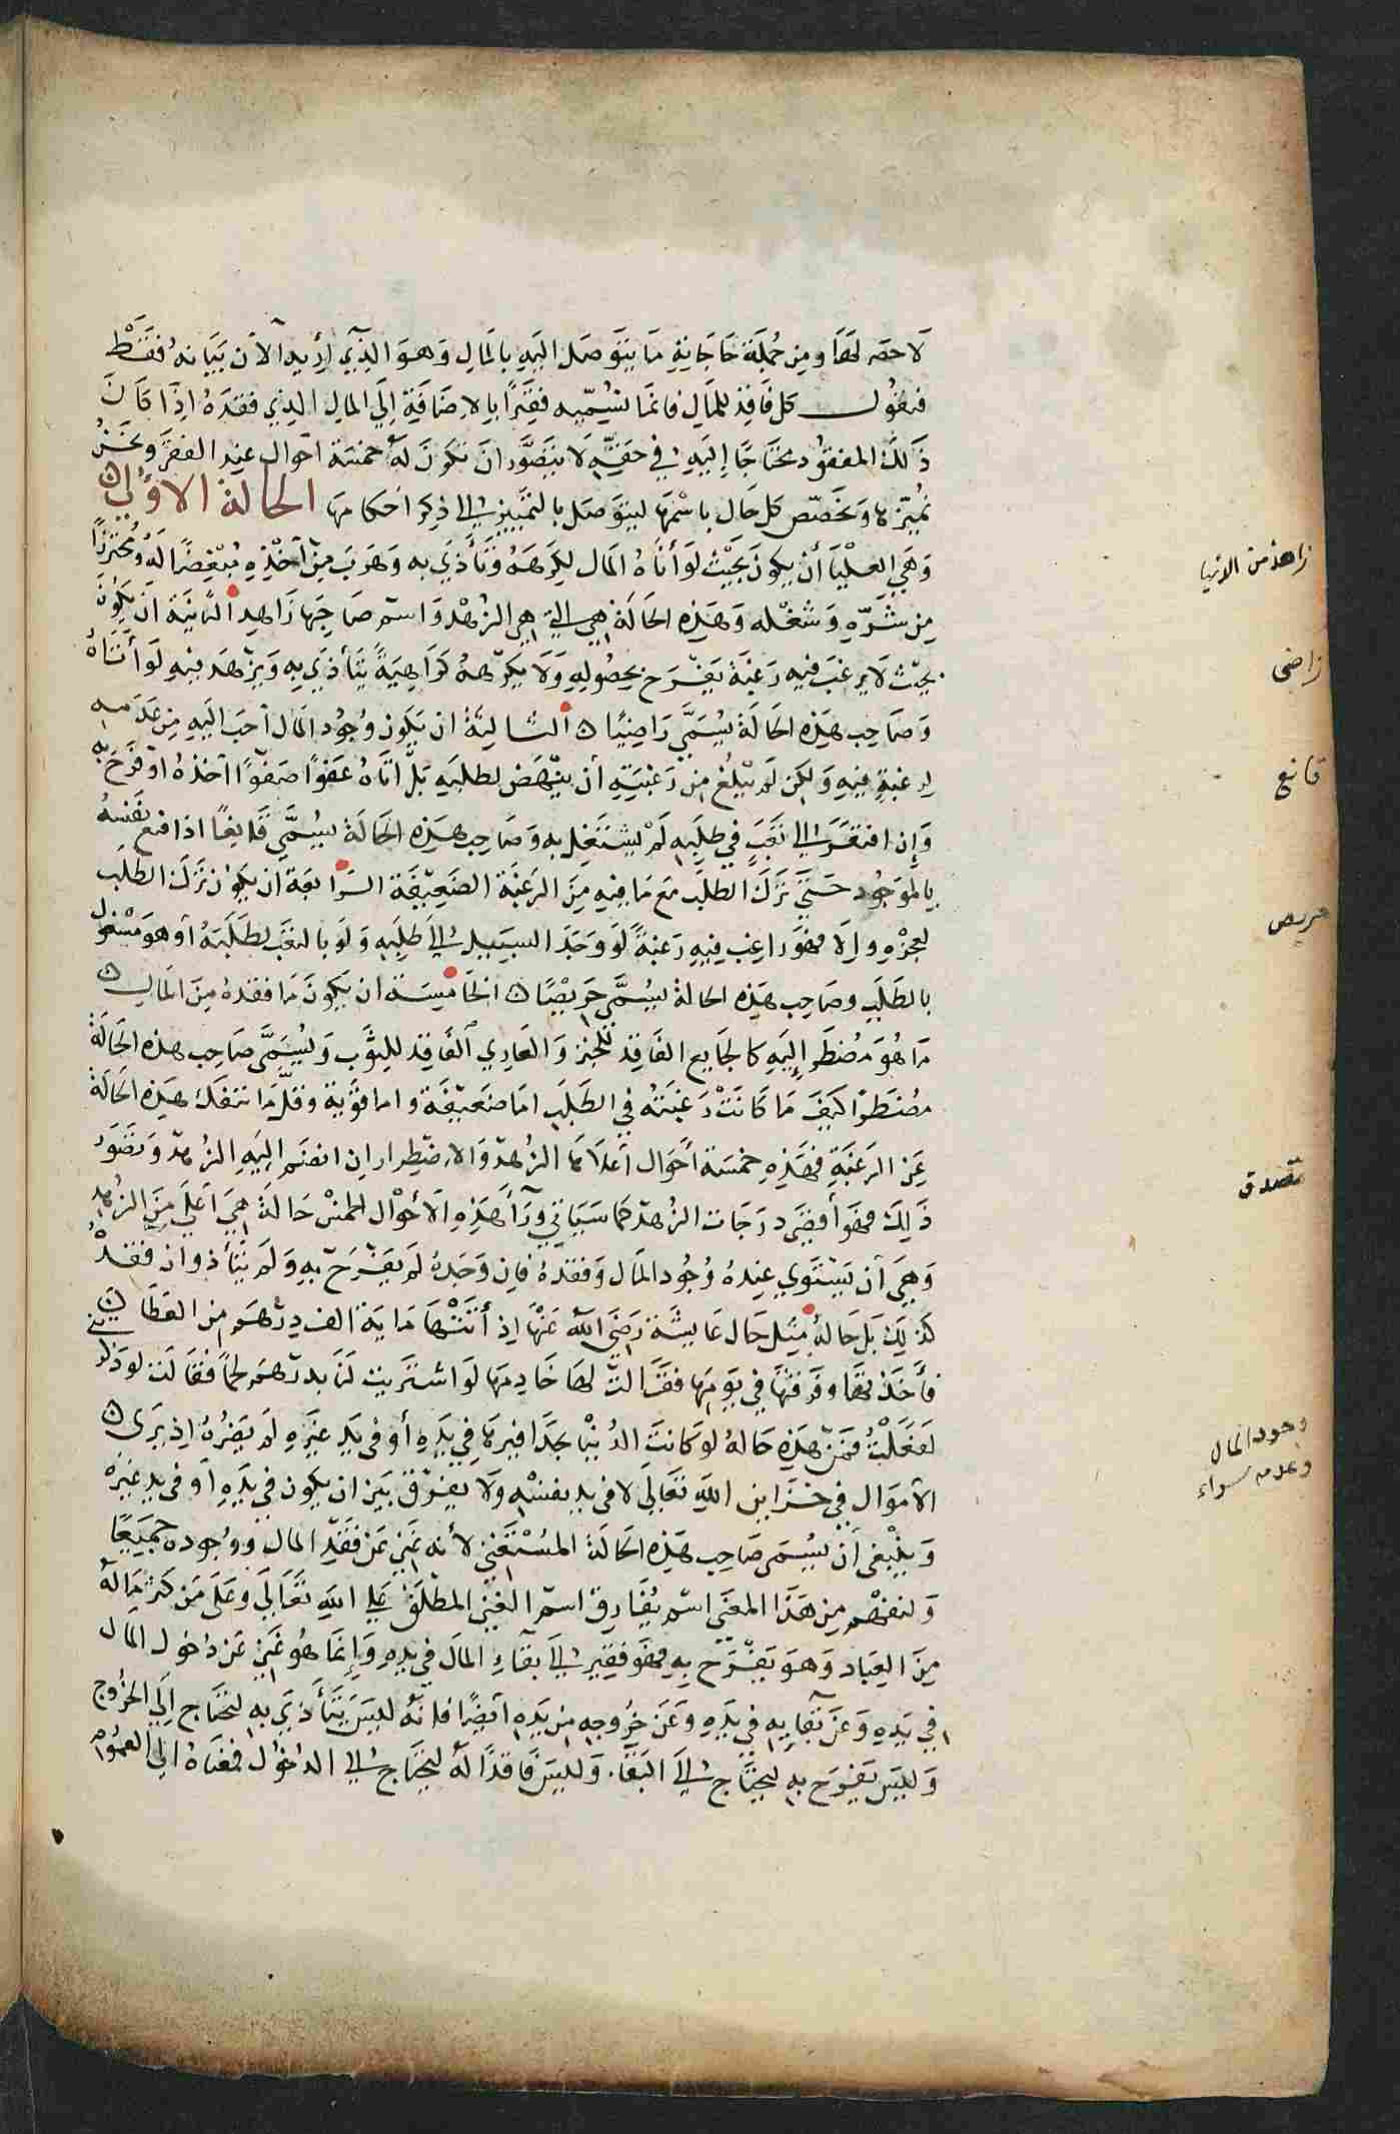 لا حصر لها ومن جملة حاجاته ما يتوصل اليه بالمال وهو الذي أريد الآن بيانه فقط
فنقول كل فاقد للمال فانما نسميه فقيرا بالاضافة إلى المال الذي فقده اذا كان
ذلك المفقود محتاجا إليه في حقه لا يتصور ان تكون له خمسة احوال عند الفقر ونحن
نميزها ونخصص كل حال باسمها ليتوصل بالتمييز الى ذكر احكامها الحالة الاولى
وهي العليا أن يكون بحيث لو أتاه المال لكرهه وتأذي به وهرب من أخذه مبغضا له ومحترزا
من شره وشغله وهذه الحالة هي التي هي الزهد واسم صاحبها زاهد الثانية ان يكون
بحيث لا يرغب فيه رغبة يفرح بحصوله ولا يكرهه كراهية يتأذي به ويزهد فيه لو أتاه
وصاحب هذه الحالة يسمى راضيا الثالثة ان يكون وجود المال أحب اليه من عدمه
لرغبة فيه ولكن لم تبلغ من رغبته أن ينهض لطلبه بل اتاه عفوا صفوا أخذه او فرح به
وإن افتقر الى تعب في طلبه لم يشتغل به وصاحب هذه الحالة يسمى قانعا اذا قنع نفسه
بالموجود حتى ترك الطلب مع ما فيه من الرغبة الضعيفة الرابعة ان يكون ترك الطلب
لعجزه والا فهو راغب فيه رغبة لو وجد السبيل الى طلبه ولو بالتعب لطلبه أو هو مشغول
بالطلب وصاحب هذه الحالة يسمى حريصا الخامسة ان يكون ما فقده من المال
ما هو مضطر إليه كالجايع الفاقد للخبز والعاري الفاقد للثوب ويسمى صاحب هذه الحالة
مضطرا كيف ما كانت رغبته في الطلب اما ضعيفة واما قوية وقلما تنفك هذه الحالة
عن الرغبة فهذه خمسة أحوال أعلاها الزهد والاضطرار ان انضم اليه الزهد وتصور
ذلك فهو أقصى درجات الزهد كما سيأتي ورآ هذه الأحوال الخمس حالة هي أعلى من الزهد
وهي أن يستوي عنده وجود المال وفقده فان وجده لم يفرح به ولم يتأذ وان فقده
كذلك بل حاله مثل حال عايشة رضي الله عنها إذ أتتها ماية الف درهم من العطا
فأخذتها وفرقتها في يومها فقالت لها خادمها لو اشتريت لنا بدرهم لحما فقالت لو ذكرتني
لفعلت فمن هذه حاله لو كانت الدنيا بحذافيرها في يده أو في يد غيره لم يضره إذ يرى
الأموال في خزاين الله تعالى لا في يد نفسه ولا يفرق بين ان يكون في يده او في يد غيره
وينبغي أن يسمى صاحب هذه الحالة المستغني لأنه غني عن فقد المال ووجوده جميعا
ولنفهم من هذا المعنى اسم يفارق اسم الغني المطلق على الله تعالى وعلى من كثر ماله
من العباد وهو يفرح به فهو فقير الى بقاء المال في يده وإنما هو غني عن دخول المال
في يده وعن بقايه في يده وعن خروجه من يده أيضا فانه ليس يتأذى به ليحتاج إلى الخروج
وليس يفرح به ليحتاج الى البقا. وليس فاقدا له ليحتاج الى الدخول فغناه الى العموم
زاهد من الدنيا
راضى
قانع
حريص
وجود المال
وعدمه سواء